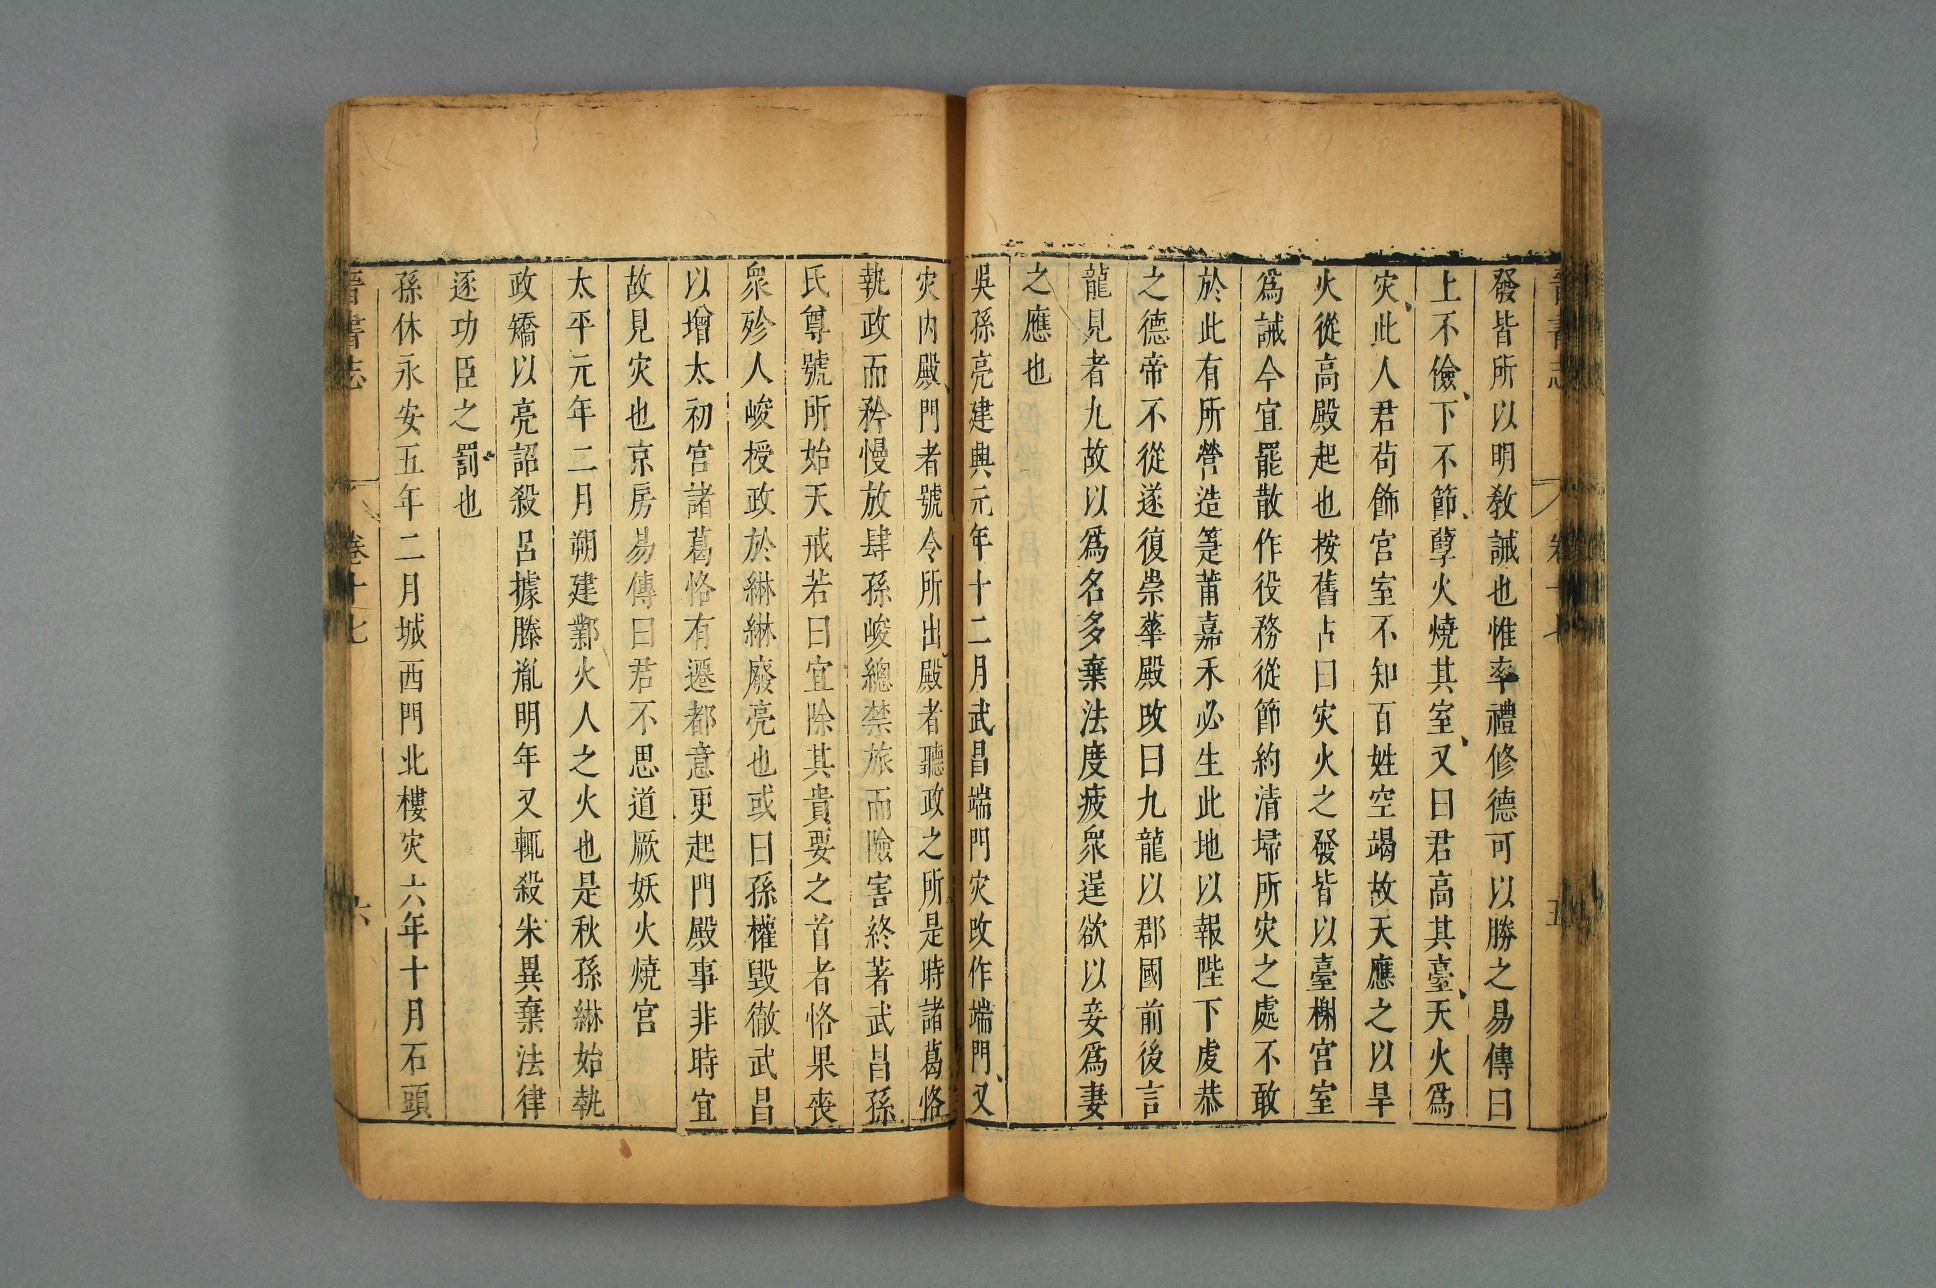 晉書志 卷十七 五
發皆所以明敎誡也惟率禮修德可以勝之易傳曰
上不儉、下不節、孽火燒其室、又曰君高其臺、天火爲
灾、此人君苟飾宮室不知百姓空竭故天應之以旱
火從高殿起也桉舊占曰灾火之發皆以臺榭宮室
爲誡今宜罷散作役務從節約清埽所灾之處不敢
於此有所營造萐莆嘉禾必生此地以報陛下虔恭
之德帝不從遂復崇華殿改曰九龍以郡國前後言
龍見者九故以爲名多棄法度疲衆逞欲以妾爲妻
之應也
吳孫亮建興元年十二月武昌端門灾改作端門、又
灾内殿、門者號令所出、殿者聽政之所是時諸葛恪
執政而矜慢放肆孫峻總禁旅而險害終著武昌孫
氏尊號所始天戒若曰宜除其貴要之首者恪果喪
衆殄人峻授政於綝綝廢亮也或曰孫權毀徹武昌
以增太初宮諸葛恪有遷都意更起門殿事非時宜
故見灾也京房易傳曰君不思道厥妖火燒宮
太平元年二月朔建鄴火人之火也是秋孫綝始執
政矯以亮詔殺呂據滕胤明年又輒殺朱異棄法律
逐功臣之罰也
孫休永安五年二月城西門北樓灾六年十月石頭
晉書志 卷十七 六